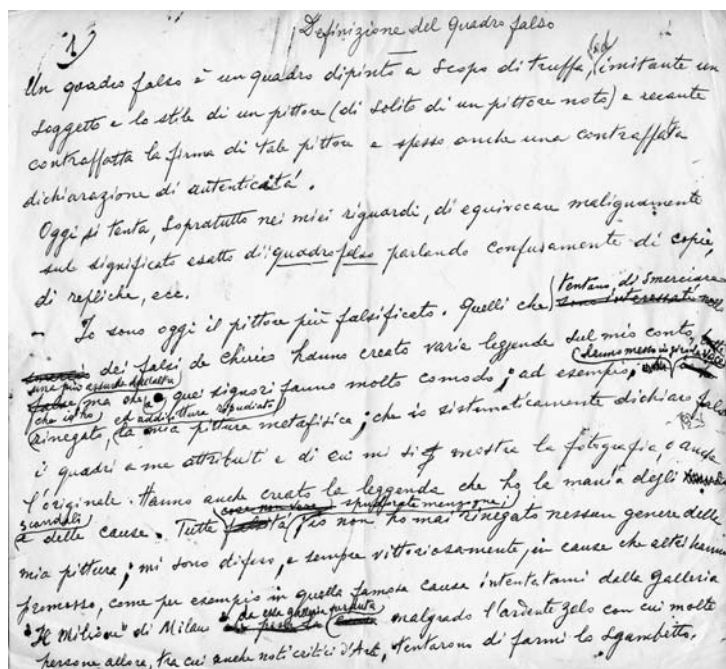 1)
Definizione del quadro falso
Un quadro falso è un quadro dipinto a scopo di truffa, (ed imitante un
soggetto e lo stile di un pittore (di solito di un pittore noto) e recante
contraffatta la firma di tale pittore e spesso anche una contraffatta
dichiarazione di autenticità.
Oggi si tenta, sopratutto nei miei riguardi, di equivocare malignamente
sul significato esatto di quadro falso parlando confusamente di copie,
di repliche, ecc.
– Io sono oggi il pittore più falsificato. Quelli che (tentano, di smerciare
sono interessati nello
smercio dei falsi de Chirico hanno creato varie leggende sul mio conto,
ma che a quei signori fanno molto comodo; ad esempio; (hanno messo in
che io ho
rinegato, (ed addirittura ripudiato) la mia pittura metafisica; che io sistematicamente dichiaro falsi
i quadri a me attribuiti e di cui mi si mostra la fotografia, o anche
l'originale. Hanno anche creato la leggenda che ho la mania degli
scandali
e delle cause. Tutte (cose non vere spudorate menzogne!) io non ho mai rinegato nessun genere della
mia pittura; mi sono difeso, e sempre vittoriosamente, in cause che altri hanno
promosso, come per esempio in quella famosa causa intentatami dalla Galleria
"Il Milione" di Milano e da essa galleria perduta malgrado l'ardente zelo con cui molte
persone allora, tra cui anche noti critici d'Arte, tentarono di farmi lo sgambetto.